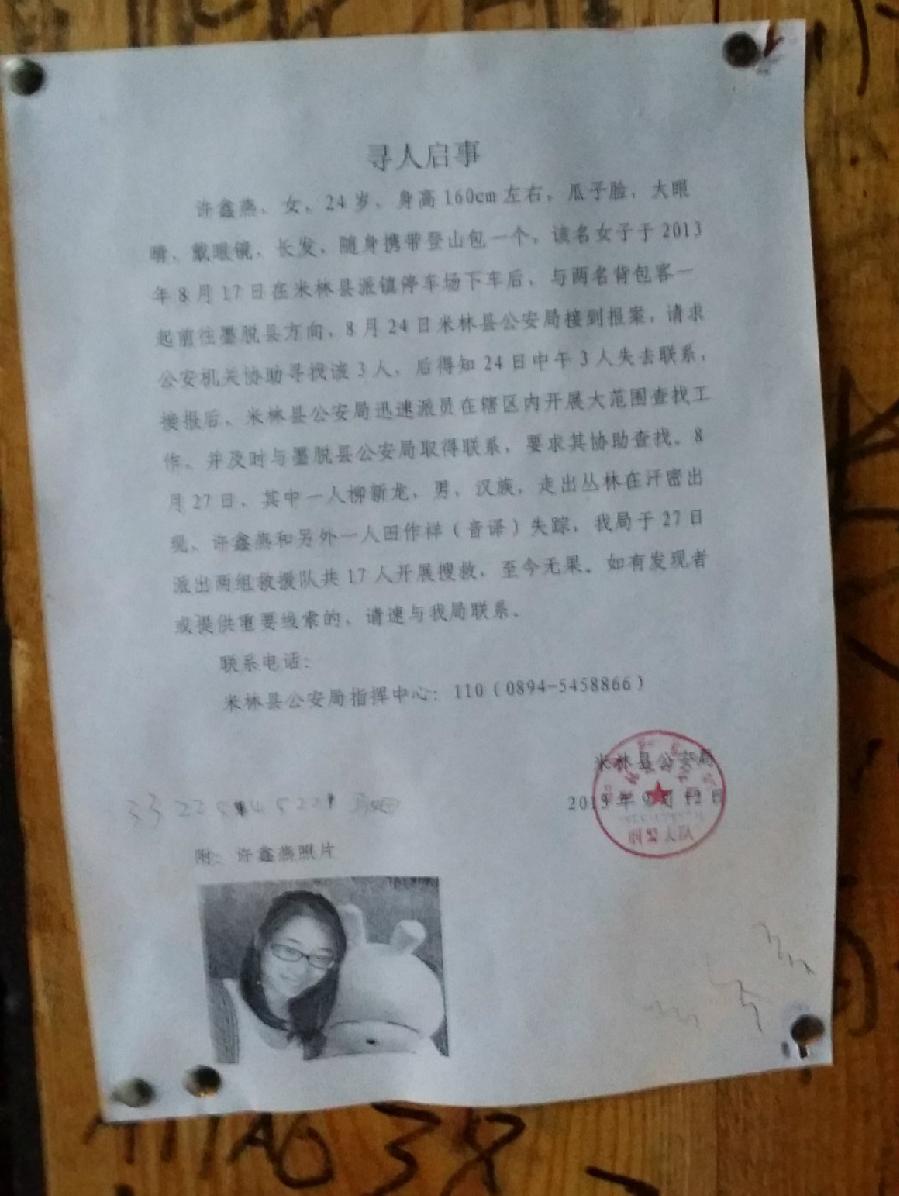 寻人启事
许鑫燕、女，24岁、身高160cm左右，瓜子脸、大眼
睛、戴眼镜、长发、随身携带登山包一个，该名女子于2013
年8月17日在米林县派镇停车场下车后，与两名背包客一
起前往墨脱县方向，8月24日米林县公安局接到报案，请求
公安机关协助寻找该3人，后得知24日中午3人失去联系，
接报后，米林县公安局迅速派员在辖区内开展大范围查找工
作、并及时与墨脱县公安局取得联系，要求其协助查找。8
月27日，其中一人柳新龙，男，汉族，走出丛林在汗密出
现、许鑫燕和另外一人田作样（音译）失踪，我局于27日
派出两组救援队共17人开展搜救，至今无果。如有发现者
或提供重要线索的，请速与我局联系。
联系电话：
米林县公安局指挥中心：110（0894-5458866）
米林县公安局
2013年9月12日
附：许鑫燕照片